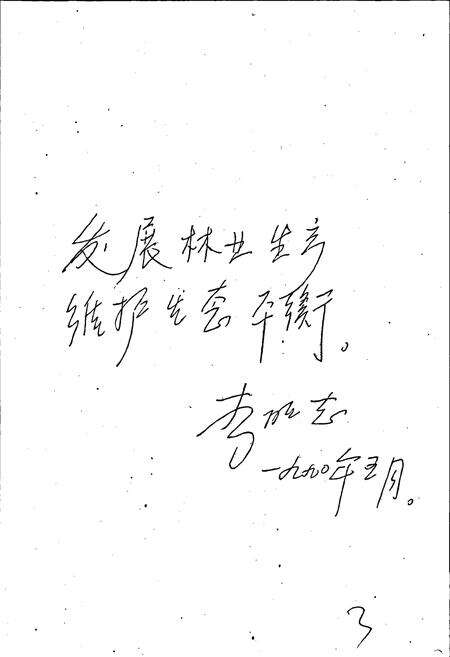 发展林业生产
维护生态平衡。
李 志
一九九〇年五月。
3